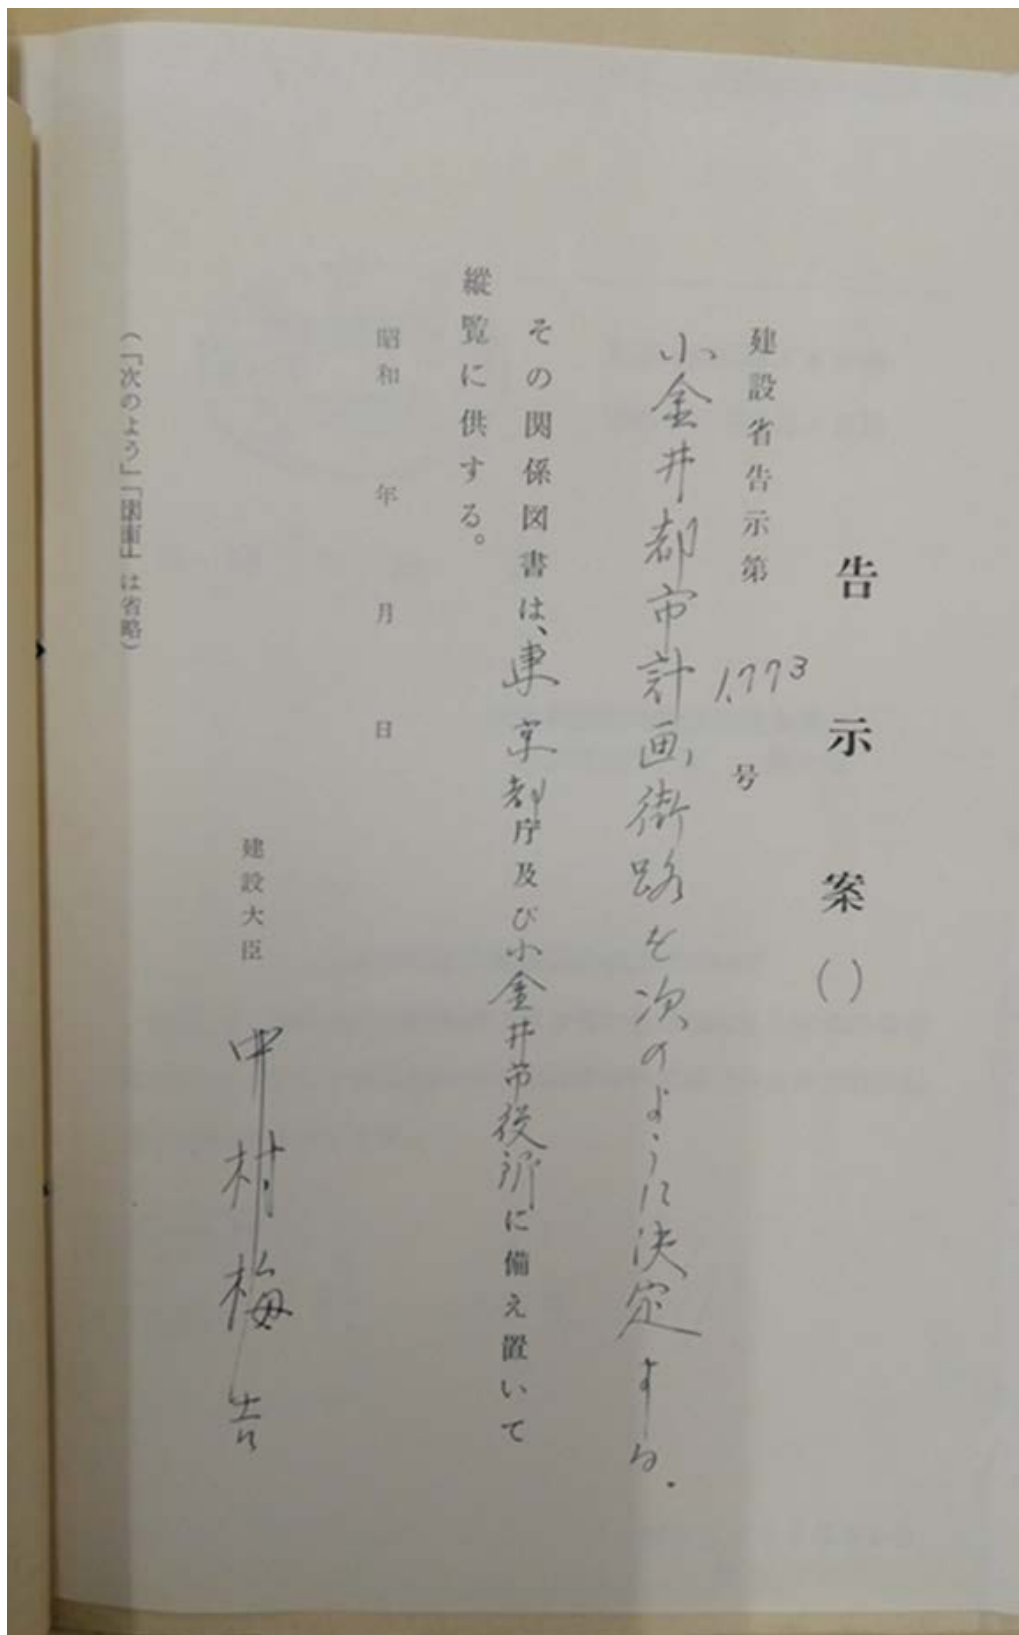 告示案()
建設省告示第1,773号
小金井都市計画街路を次のように決定する.
その関係図書は、東京都庁及び小金井市役所に備え置いて
縦覧に供する。
昭和 年 月 日
建設大臣 中村梅吉
(「次のよう」「図面」は省略)